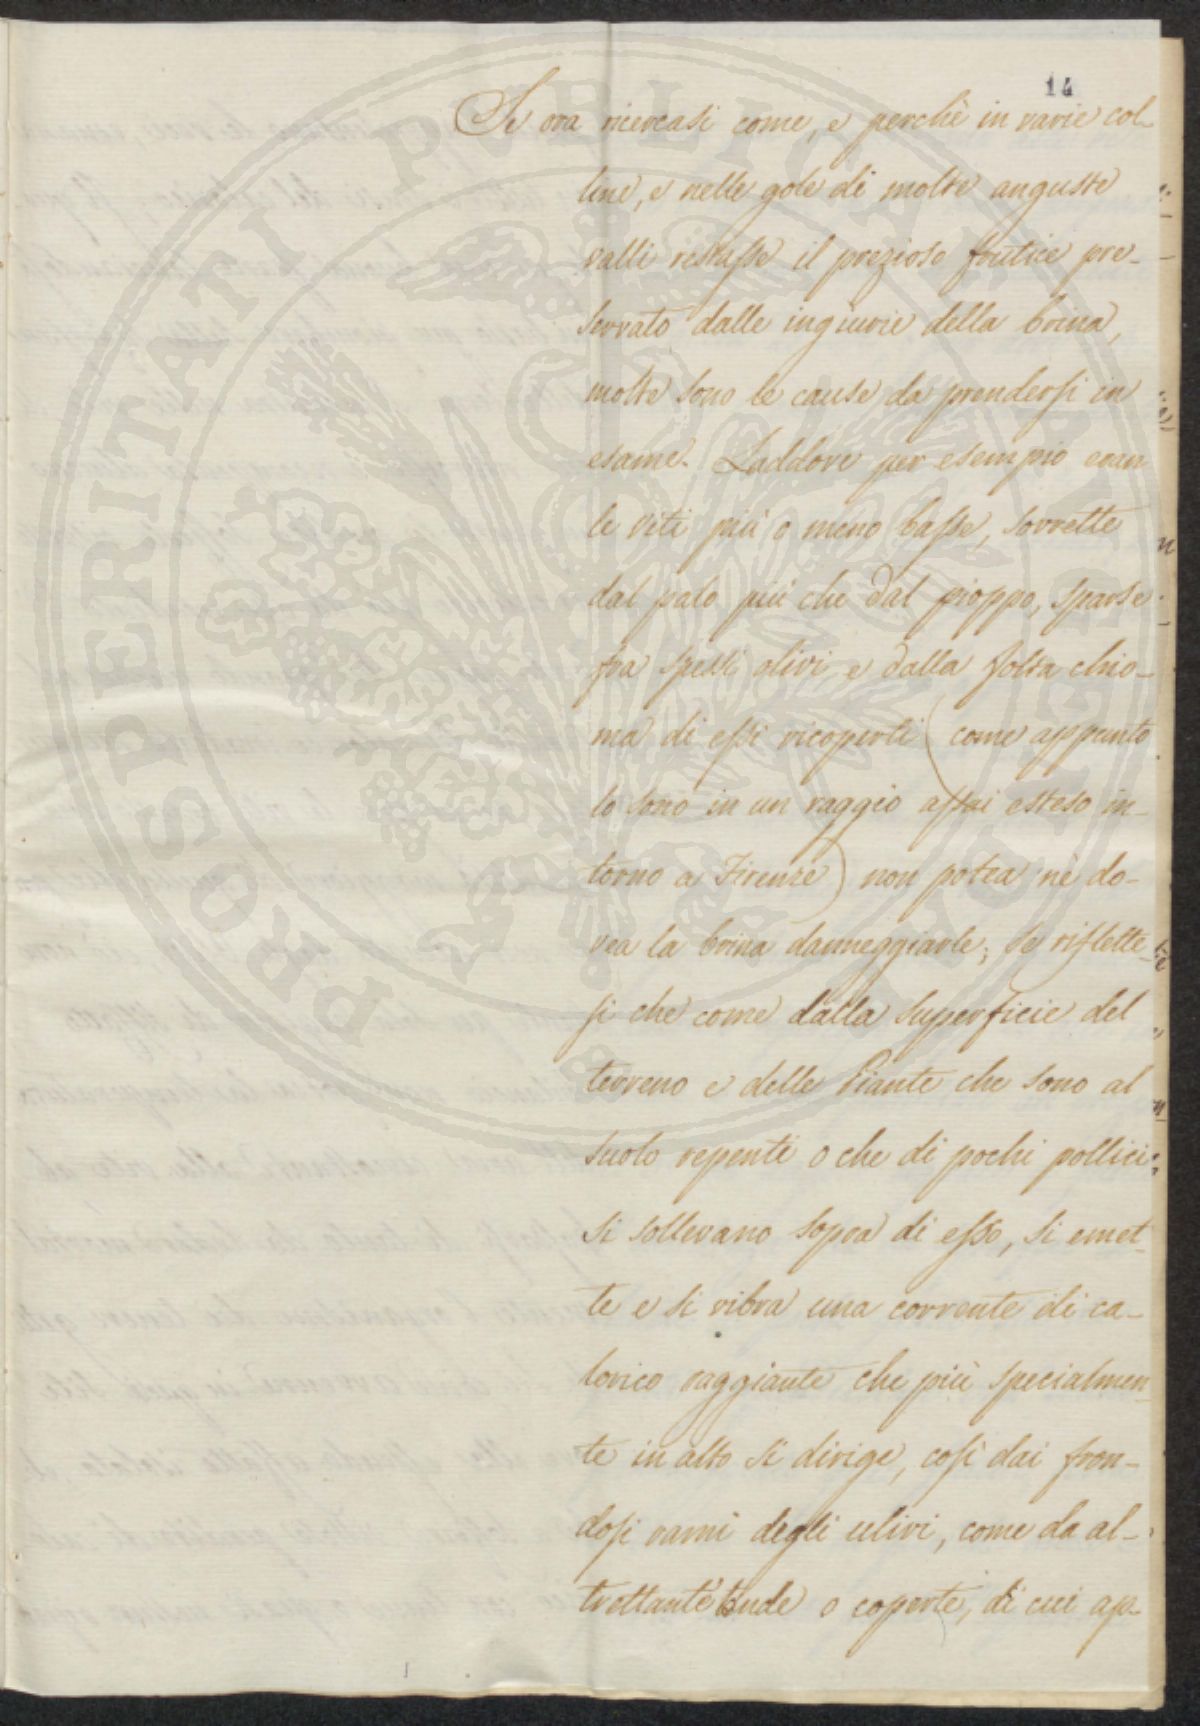 14
Se ora ricercasi come, e perchè in varie col-
line, e nelle gole di molte anguste
valli restasse il prezioso frutice pre-
servato dalle ingiurie della brina,
molte sono le cause da prendersi in
esame. Laddove per esempio eran
le viti più o meno basse, sorrette
dal palo più che dal pioppo, sparse
fra spessi olivi e dalla folta chio-
ma di essi ricoperti (come appunto
lo sono in un raggio assai esteso in-
torno a Firenze) non potea nè do-
vea la brina danneggiarle; se riflette-
si che come dalla superficie del
terreno e delle Piante che sono al
suolo repenti o che di pochi pollici
si sollevano sopra di esso, si emet-
te e si vibra una corrente di ca-
lorico raggiante che più specialmen-
te in alto si dirige, così dai fron-
dosi rami degli ulivi, come da al-
trettante tende o coperte, di cui ap-
PROSPERITATI PUBLICAE AUGENDAE